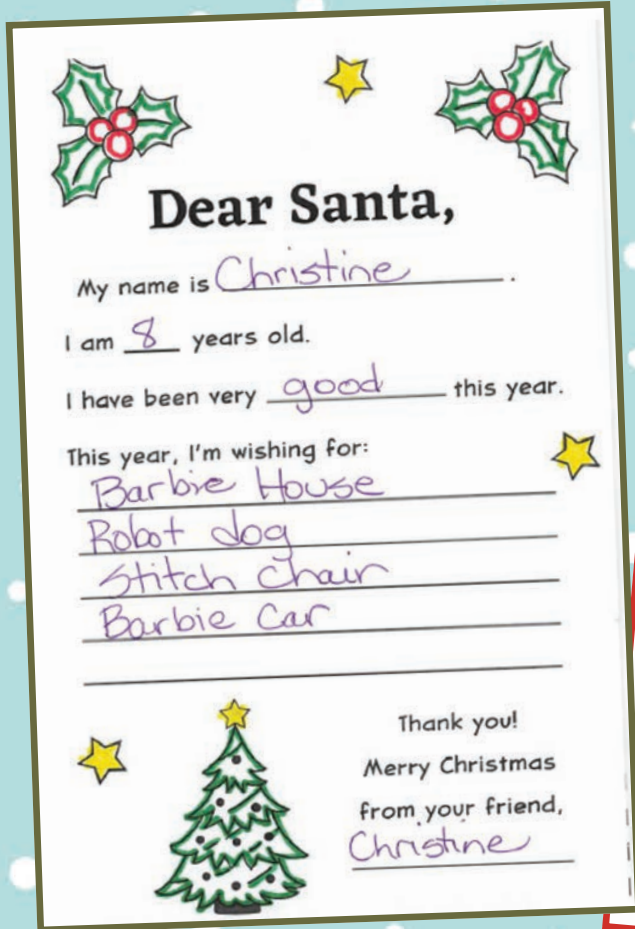 Dear Santa,
My name is Christine.
I am 8 years old.
I have been very good this year.
This year, I'm wishing for:
Barbie House
Robot dog
Stitch Chair
Barbie Car
Thank you!
Merry Christmas
from your friend,
Christine